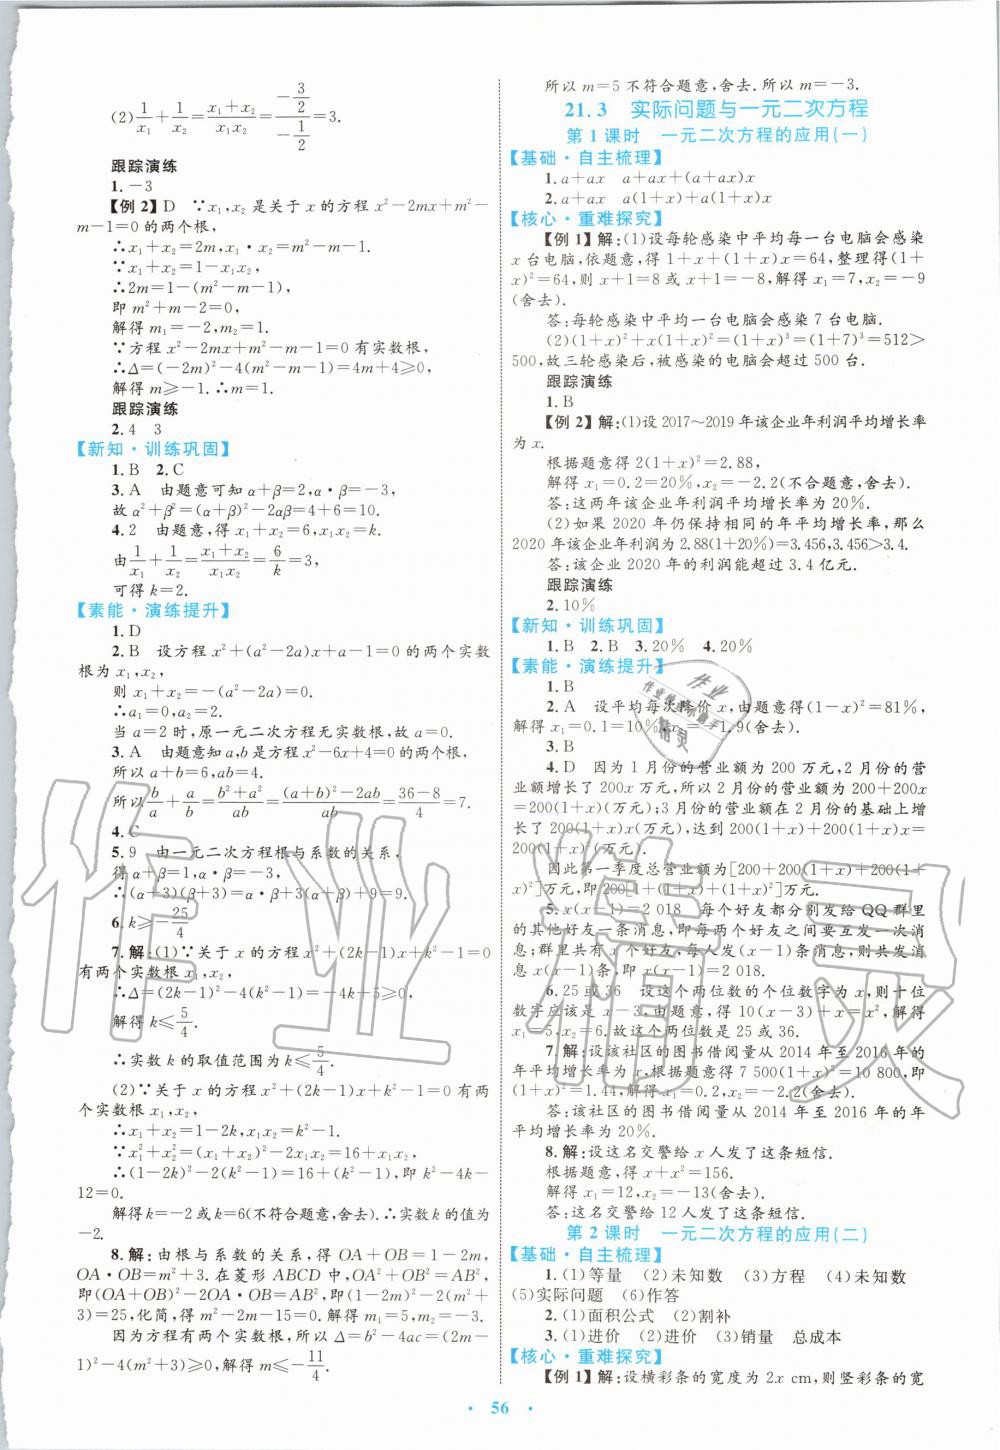 (2)1/x₁+1/x₂=(x₁+x₂)/(x₁x₂)=(-3/2)/(-1/2)=3.
跟踪演练
1.-3
【例2】D ∵x₁,x₂是关于x的方程x²-2mx+m²-
m-1=0的两个根,
∴x₁+x₂=2m,x₁·x₂=m²-m-1.
∵x₁+x₂=1-x₁x₂,
∴2m=1-(m²-m-1),
即m²+m-2=0,
解得m₁=-2,m₂=1.
∵方程x²-2mx+m²-m-1=0有实数根,
∴Δ=(-2m)²-4(m²-m-1)=4m+4≥0,
解得m≥-1.∴m=1.
跟踪演练
2.4 3
【新知·训练巩固】
1.B 2.C
3.A 由题意可知α+β=2,α·β=-3,
故α²+β²=(α+β)²-2αβ=4+6=10.
4.2 由题意,得x₁+x₂=6,x₁x₂=k.
由1/x₁+1/x₂=(x₁+x₂)/(x₁x₂)=6/k=3,
可得k=2.
【素能·演练提升】
1.D
2.B 设方程x²+(a²-2a)x+a-1=0的两个实数
根为x₁,x₂,
则x₁+x₂=-(a²-2a)=0.
∴a₁=0,a₂=2.
当a=2时,原一元二次方程无实数根,故a=0.
3.A 由题意知a,b是方程x²-6x+4=0的两个根,
所以a+b=6,ab=4.
所以b/a+a/b=(b²+a²)/ab=((a+b)²-2ab)/ab=(36-8)/4=7.
4.C
5.9 由一元二次方程根与系数的关系,
得α+β=1,α·β=-3,
∴(α+3)(β+3)=α·β+3(α+β)+9=9.
6.k≥-25/4
7.解:(1)∵关于x的方程x²+(2k-1)x+k²-1=0
有两个实数根x₁,x₂,
∴Δ=(2k-1)²-4(k²-1)=-4k+5≥0,
解得k≤5/4.
∴实数k的取值范围为k≤5/4.
(2)∵关于x的方程x²+(2k-1)x+k²-1=0有两
个实数根x₁,x₂,
∴x₁+x₂=1-2k,x₁x₂=k²-1.
∵x₁²+x₂²=(x₁+x₂)²-2x₁x₂=16+x₁x₂,
∴(1-2k)²-2(k²-1)=16+(k²-1),即k²-4k-
12=0.
解得k=-2或k=6(不符合题意,舍去).∴实数k的值为
-2.
8.解:由根与系数的关系,得OA+OB=1-2m,
OA·OB=m²+3.在菱形ABCD中,OA²+OB²=AB²,
即(OA+OB)²-2OA·OB=AB²,所以(1-2m)²-2(m²+
3)=25,化简,得m²-2m-15=0.解得m₁=5,m₂=-3.
因为方程有两个实数根,所以Δ=b²-4ac=(2m-
1)²-4(m²+3)≥0,解得m≤-11/4.
所以m=5不符合题意,舍去.所以m=-3.
21.3 实际问题与一元二次方程
第1课时 一元二次方程的应用(一)
【基础·自主梳理】
1.a+ax a+ax+(a+ax)x
2.a+ax a(1+x)+a(1+x)x
【核心·重难探究】
【例1】解:(1)设每轮感染中平均每一台电脑会感染
x台电脑,依题意,得1+x+(1+x)x=64,整理得(1+
x)²=64,则x+1=8或x+1=-8,解得x₁=7,x₂=-9
(舍去).
答:每轮感染中平均一台电脑会感染7台电脑.
(2)(1+x)²+x(1+x)²=(1+x)³=(1+7)³=512>
500,故三轮感染后,被感染的电脑会超过500台.
跟踪演练
1.B
【例2】解:(1)设2017~2019年该企业年利润平均增长率
为x.
根据题意得2(1+x)²=2.88,
解得x₁=0.2=20%,x₂=-2.2(不合题意,舍去).
答:这两年该企业年利润平均增长率为20%.
(2)如果2020年仍保持相同的年平均增长率,那么
2020年该企业年利润为2.88(1+20%)=3.456,3.456>3.4.
答:该企业2020年的利润能超过3.4亿元.
跟踪演练
2.10%
【新知·训练巩固】
1.B 2.B 3.20% 4.20%
【素能·演练提升】
1.B
2.A 设平均每次降价x,由题意得(1-x)²=81%,
解得x₁=0.1=10%,x₂=1.9(舍去).
3.B
4.D 因为1月份的营业额为200万元,2月份的营业
额增长了200x万元,所以2月份的营业额为200+200x=
200(1+x)(万元);3月份的营业额在2月份的基础上增
长了200(1+x)x(万元),达到200(1+x)+200(1+x)x=
200(1+x)²(万元).
因此第一季度总营业额为[200+200(1+x)+200(1+
x)²]万元,即200[1+(1+x)+(1+x)²]万元.
5.x(x-1)=2 018 每个好友都分别发给QQ群里
的其他好友一条消息,即两两之间要互发一次消
息;群里共有x个好友,每人发(x-1)条消息,则共发消息
x(x-1)条,即x(x-1)=2 018.
6.25或36 设这个两位数的个位数字为x,则十位
数字为(x-3).由题意,得10(x-3)+x=x²,解得
x₁=5,x₂=6.故这个两位数是25或36.
7.解:设该社区的图书借阅量从2014年至2016年的
年平均增长率为x,根据题意得7 500(1+x)²=10 800,即
(1+x)²=1.44,解得x₁=0.2,x₂=-2.2(舍去).
答:该社区的图书借阅量从2014年至2016年的年
平均增长率为20%.
8.解:设这名交警给x人发了这条短信.
根据题意,得x+x²=156.
解得x₁=12,x₂=-13(舍去).
答:这名交警给12人发了这条短信.
第2课时 一元二次方程的应用(二)
【基础·自主梳理】
1.(1)等量 (2)未知数 (3)方程 (4)未知数
(5)实际问题 (6)作答
2.(1)面积公式 (2)割补
3.(1)进价 (2)进价 (3)销量 总成本
【核心·重难探究】
【例1】解:设横彩条的宽度为2x cm,则竖彩条的宽
·56·
作业精灵